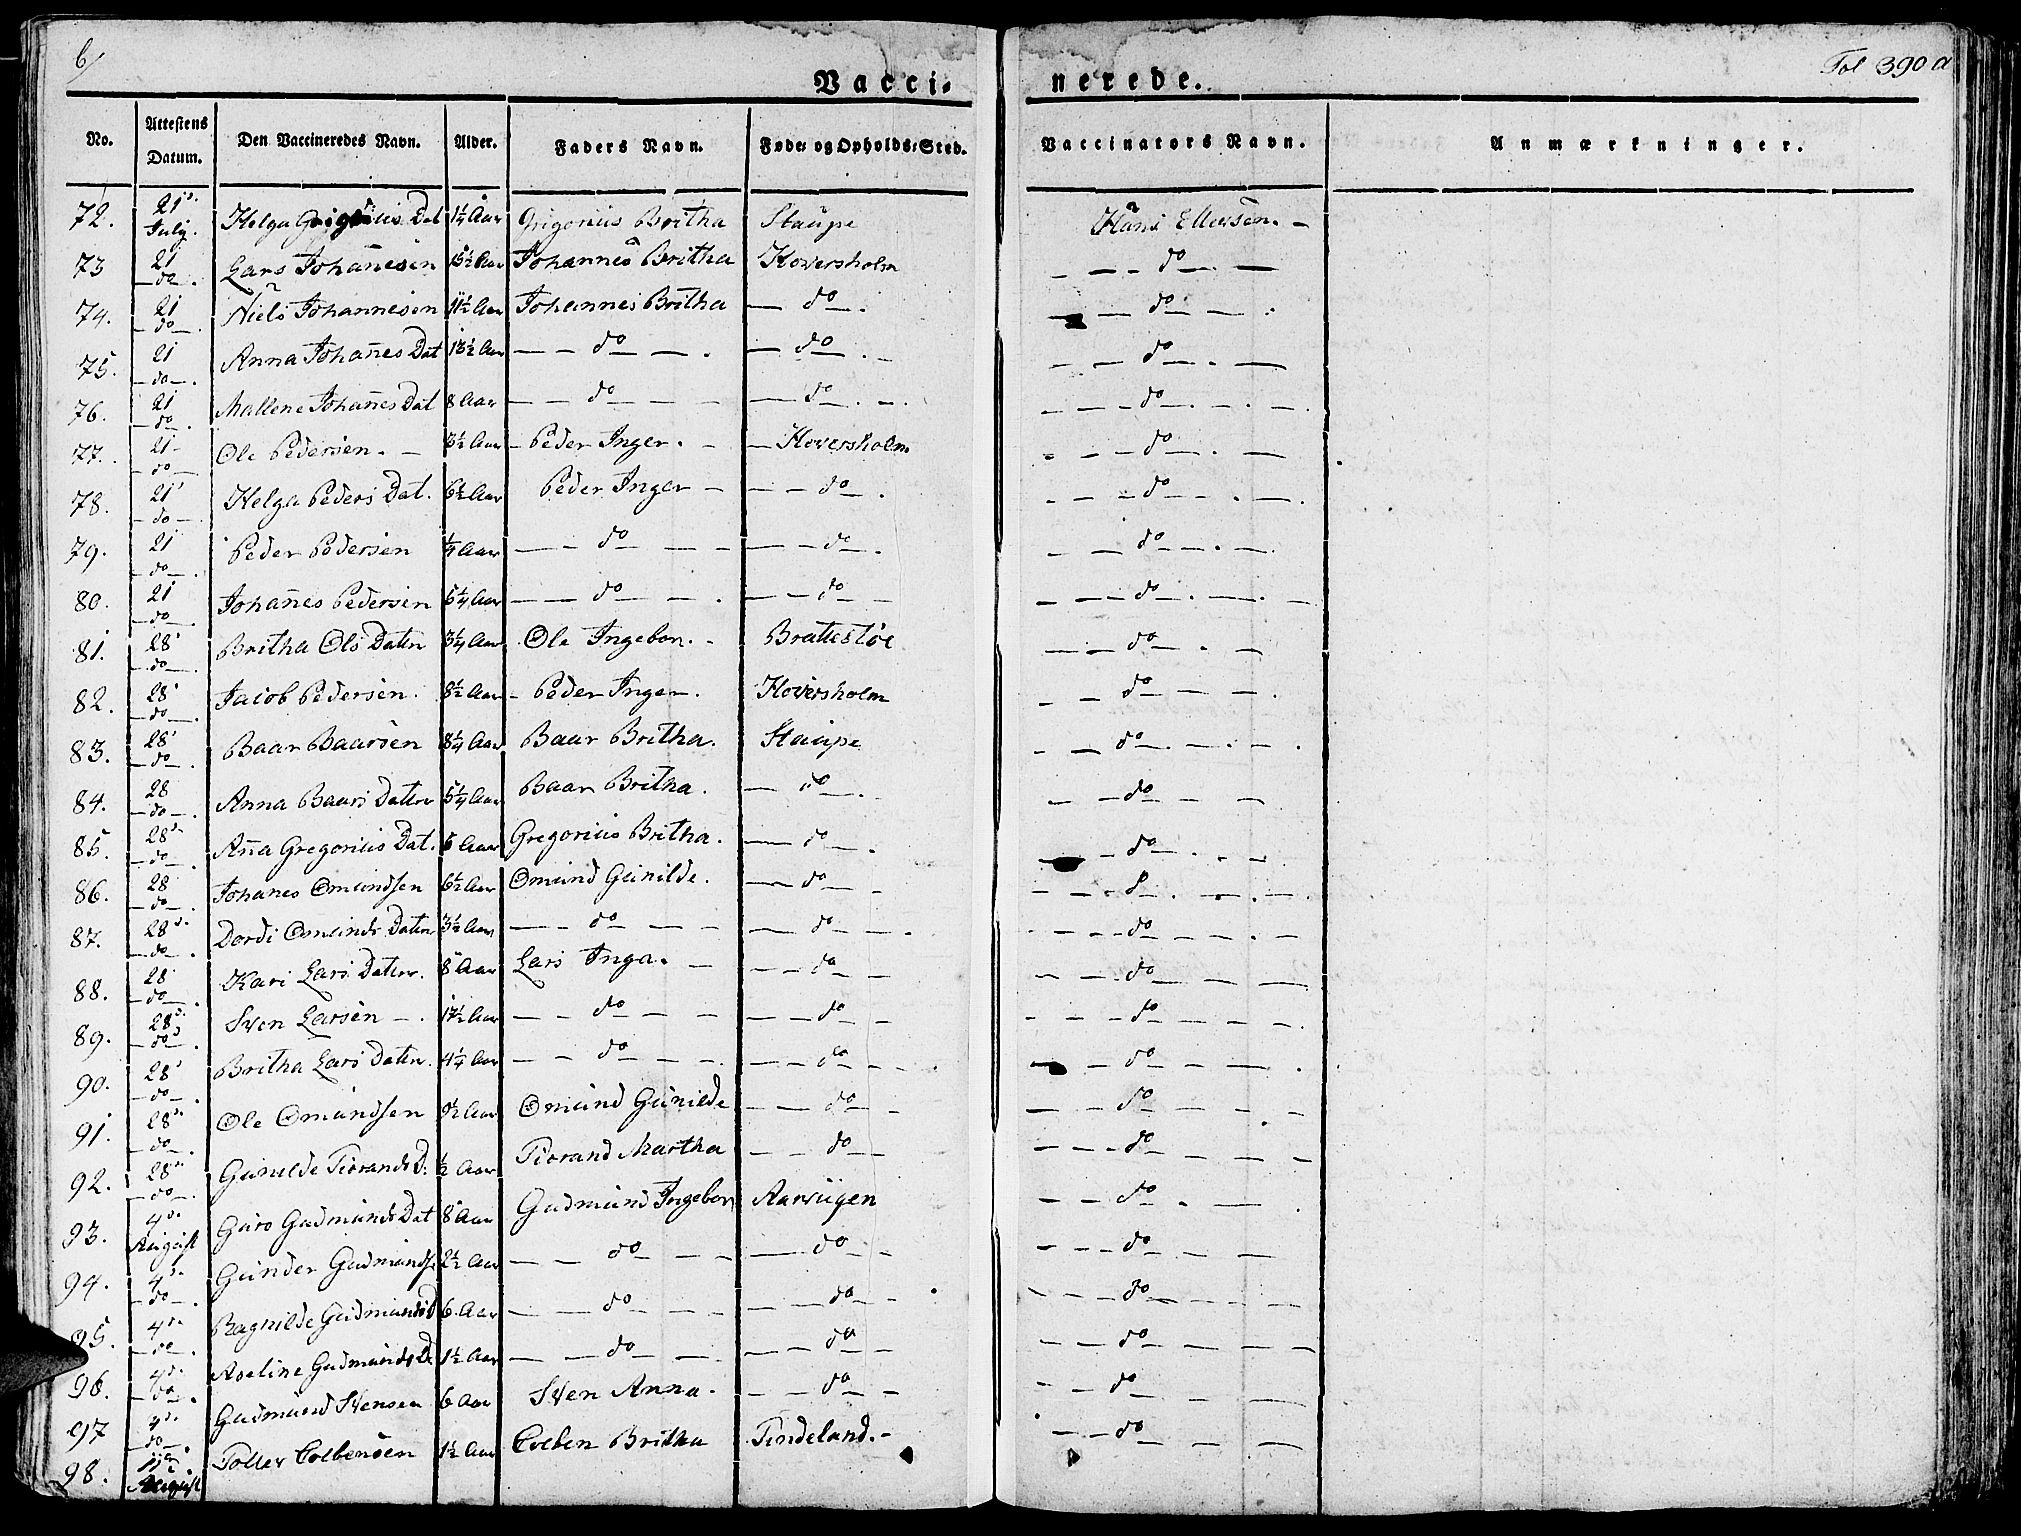 6/
Fol 390 a
Vacci- nerede.
No. Attestens Datum. Den Vaccineredes Navn. Alder. Faders Navn. Føde- og Opholds-Sted. Vaccinators Navn. Anmærkninger.
72. 21 July. Helga Grigorius Dat 1¼ Aar Grigorius Britha Staupe Hans Ellersen. –
73 21 do Lars Johannesen 15½ Aar Johannes Britha Hoversholm do
74. 21 do Niels Johannesen 11½ Aar Johannes Britha do do
75. 21 do Anna Johan̄es Dat 13½ Aar do do do
76. 21 do Mallene Johan̄es Dat 8 Aar do do do
77. 21 do Ole Pedersen. – 3½ Aar Peder Inger. Hoversholm do
78. 21 do Helga Peders Dat. 6½ Aar Peder Inger do do
79. 21 do Peder Pedersen ¼ Aar do do do
80. 21 do Johan̄es Pedersen 5¼ Aar do do do
81. 28 do Britha Ols Dater 3¼ Aar Ole Ingebor. Brattestöe do
82. 28 do Jacob Pedersen. 8½ Aar Peder Inger. Hoversholm do
83. 28 do Baar Baarsen 8¼ Aar Baar Britha. Staupe do
84. 28 do Anna Baars Dater 5¼ Aar Baar Britha. do do
85. 28 do An̄a Gregorius Dat. 6 Aar Gregorius Britha. do do
86. 28 do Johanes Omundsen 6½ Aar Omund Gunilde. do do
87. 28 do Dordi Omunds Dater 3½ Aar do do do
88. 28 do Kari Lars Dater. 8 Aar Lars Inga. do do
89. 28 do Sven Larsen 17½ Aar do do do
90. 28 do Britha Lars Dater. 4¼ Aar do do do
91. 28 do Ole Omundsen 9½ Aar Omund Gunilde do do
92. 28 do Gunilde Tiorands D. ½ Aar Tiorand Martha do do
93. 4 August Guro Gudmunds Dat 8 Aar Gudmund Ingebor Aarviigen do
94. 4 do Gunder Gudmundse 2½ Aar do do do
95. 4 do Ragnilde Gudmundsd 6 Aar do do do
96. 4 do Aseline Gudmunds D. 1½ Aar do do do
97 4 do Gudmund Svensen 6 Aar Sven Anna. do do
98. August Toller Colbensen 1½ Aar Colben Britha Tindeland. – do